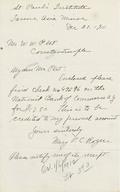 St. Paul's Institute
Tarsus, Asia Minor
Dec. 21
Mr. W. W. Peet
Constantinople
My dear Mr. Peet:
Enclosed please
find check no.
National Bank of Commerce of
This is to
be credited to my personal account
Yours sincerely
Mary P. C. Rogers
Please notify me of its receipt